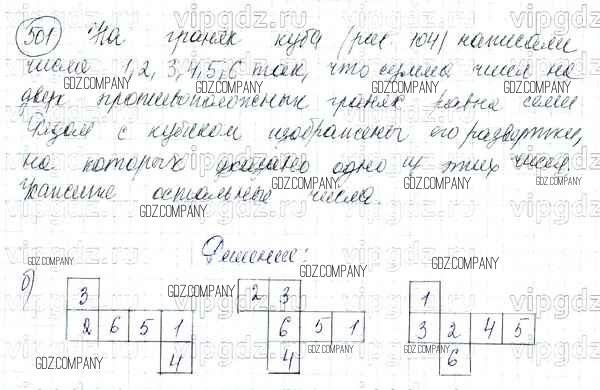 501 На гранях куба (рис 104) написали
числа 1, 2, 3, 4, 5, 6 так, что сумма чисел на
двух противоположных гранях равна семи
Рядом с кубиком изображены его развертки,
на которых указано одно из этих чисел.
Укажите остальные числа.
Решение:
б)
3 2 3 1
2 6 5 1 6 5 1 3 2 4 5
4 4 6
vipgdz.ru
GDZ.COMPANY